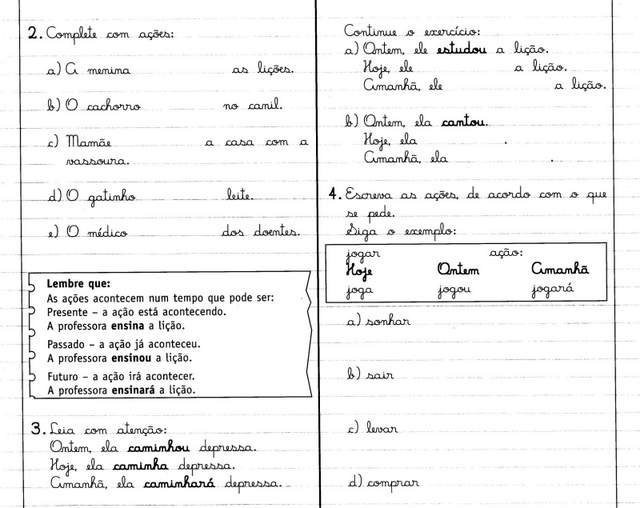 2. Complete com ações:
a) A menina as lições.
b) O cachorro no canil.
c) Mamãe a casa com a
vassoura.
d) O gatinho leite.
e) O médico dos doentes.
Lembre que:
As ações acontecem num tempo que pode ser:
Presente – a ação está acontecendo.
A professora ensina a lição.
Passado – a ação já aconteceu.
A professora ensinou a lição.
Futuro – a ação irá acontecer.
A professora ensinará a lição.
3. Leia com atenção:
Ontem, ela caminhou depressa.
Hoje, ela caminha depressa.
Amanhã, ela caminhará depressa.
Continue o exercício:
a) Ontem, ele estudou a lição.
Hoje, ele a lição.
Amanhã, ele a lição.
b) Ontem, ela cantou.
Hoje, ela .
Amanhã, ela .
4. Escreva as ações, de acordo com o que
se pede.
Siga o exemplo:
jogar ação:
Hoje Ontem Amanhã
joga jogou jogará
a) sonhar
b) sair
c) levar
d) comprar